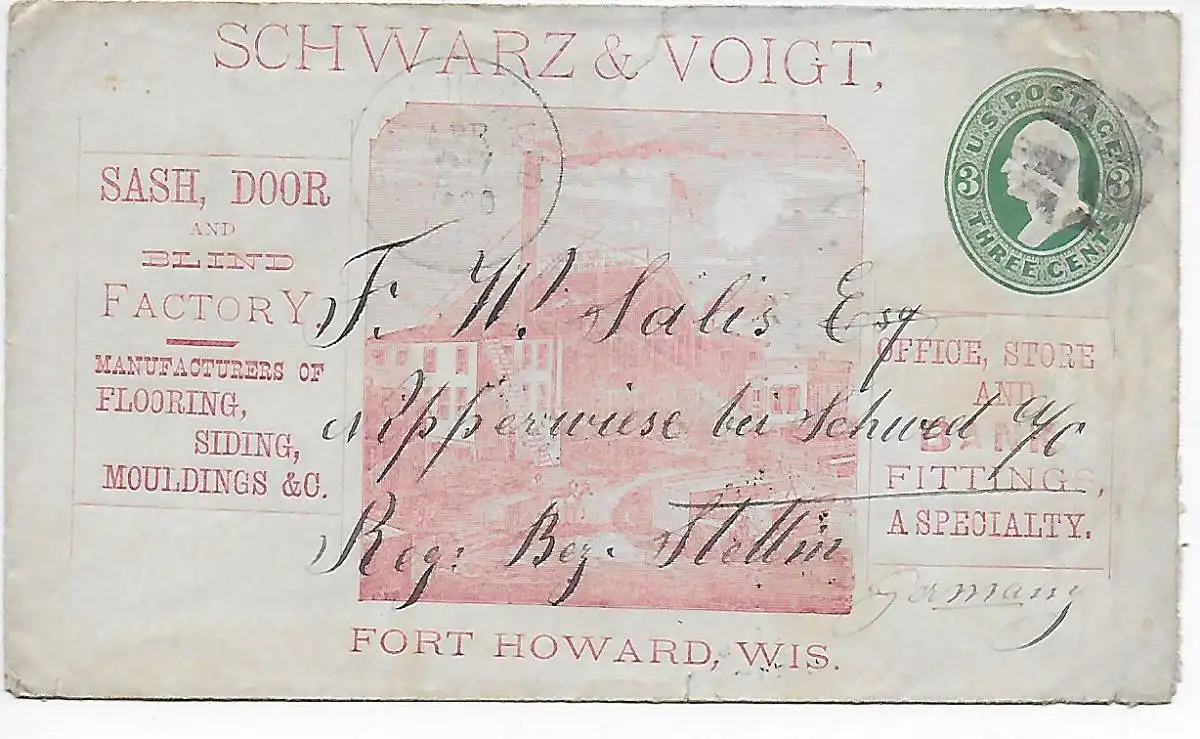 SCHWARZ & VOIGT,
U.S. POSTAGE
3 3
THREE CENTS
APR
SASH, DOOR
AND
BLIND
FACTORY.
MANUFACTURERS OF
FLOORING,
SIDING,
MOULDINGS &C.
OFFICE, STORE
AND
BANK
FITTINGS,
A SPECIALTY.
F. W. Salis Esq
Nipperwiese bei Schwed a/O
Reg: Bez. Stettin
Germany
FORT HOWARD, WIS.